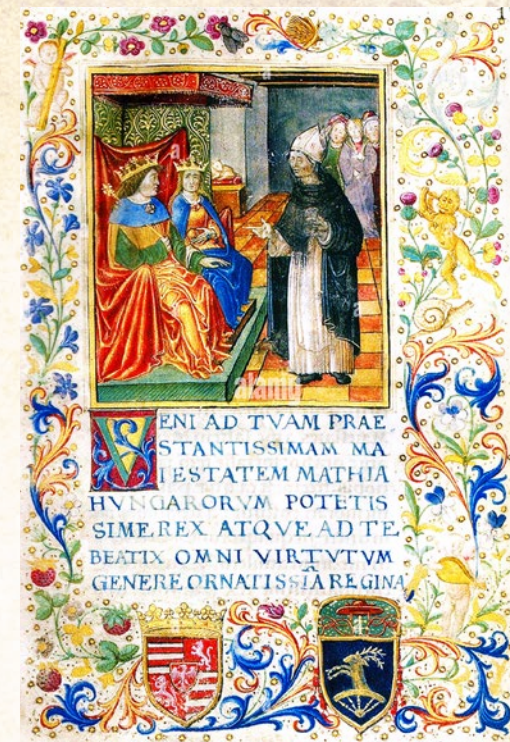 1
VENI AD TVAM PRAE
STANTISSIMAM MA
IESTATEM MATHIA
HVNGARORVM POTETIS
SIME REX ATQVE AD TE
BEATIX OMNI VIRTVTVM
GENERE ORNATISSIA REGINA
alamy